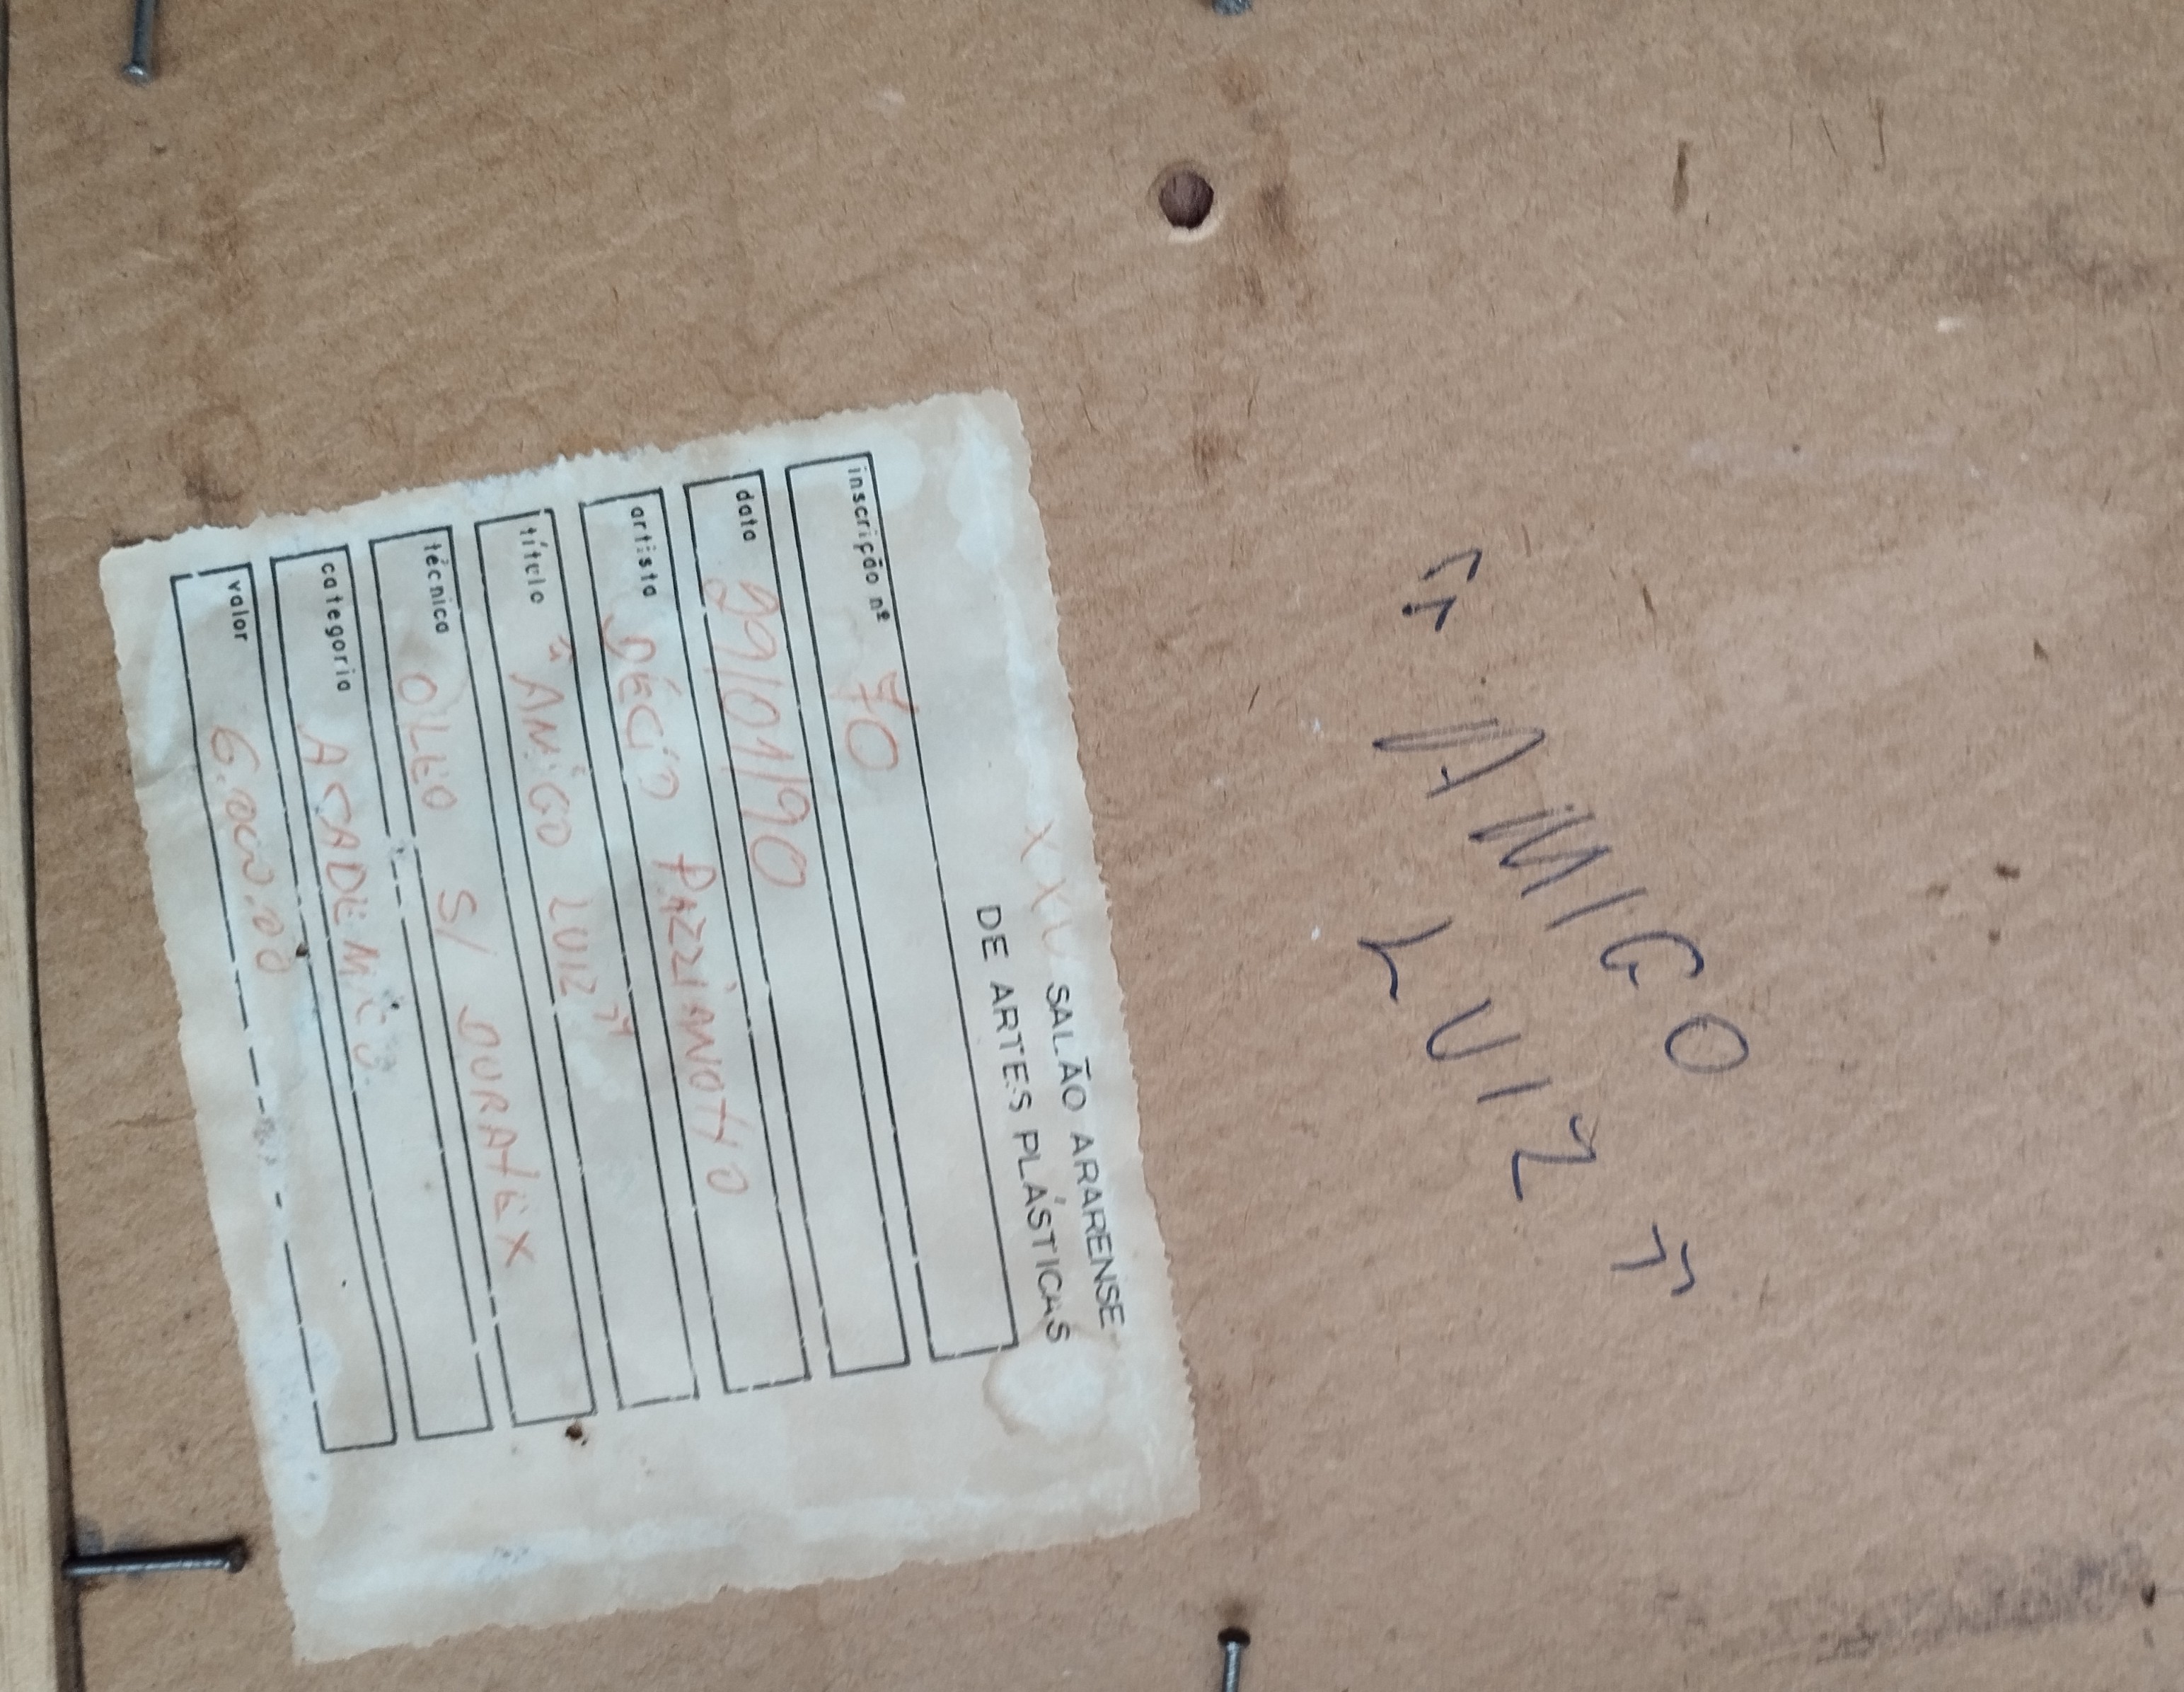 " AMIGO
LUIZ "
XXV SALÃO ARARENSE
DE ARTES PLÁSTICAS
inscrição nº 70
data 29/01/90
artista DÉCIO PAZZIANOTTO
título "AMIGO LUIZ"
técnica OLEO S/ DURATEX
categoria ACADEMICO
valor 6.000.00